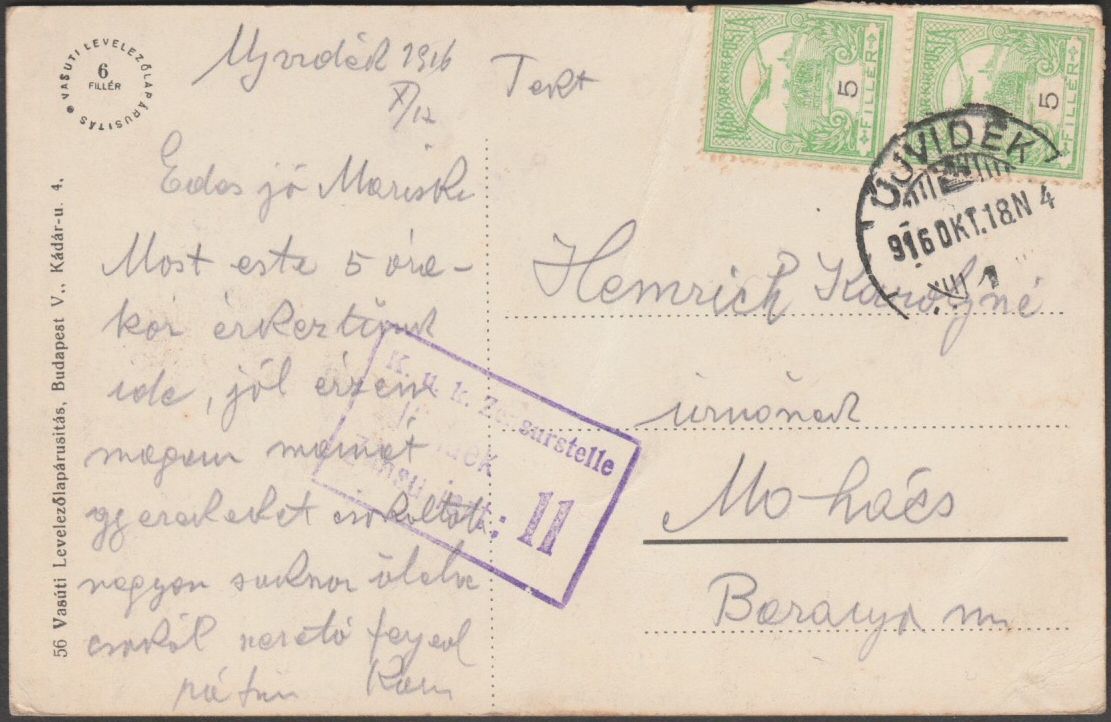 VASÚTI LEVELEZŐLAPÁRUSITÁS
6
FILLÉR
Ujvidék 1916
X/12
Édes jó Mariska
Most este 5 óra-
kor érkeztünk
ide, jól érzem
magam mamát
gyerekeket csókoltat
nagyon sokszor ölelve
csókol szerető
56 Vasúti Levelezőlapárusitás, Budapest V., Kádár-u. 4.
MAGYAR KIR. POSTA
5
FILLÉR
MAGYAR KIR. POSTA
5
FILLÉR
ÚJVIDÉK
916 OKT. 18. N 4
K. u. k. Zensurstelle
Újvidék
11
Hemrich Károlyné
úrnőnek
Mohács
Baranya m